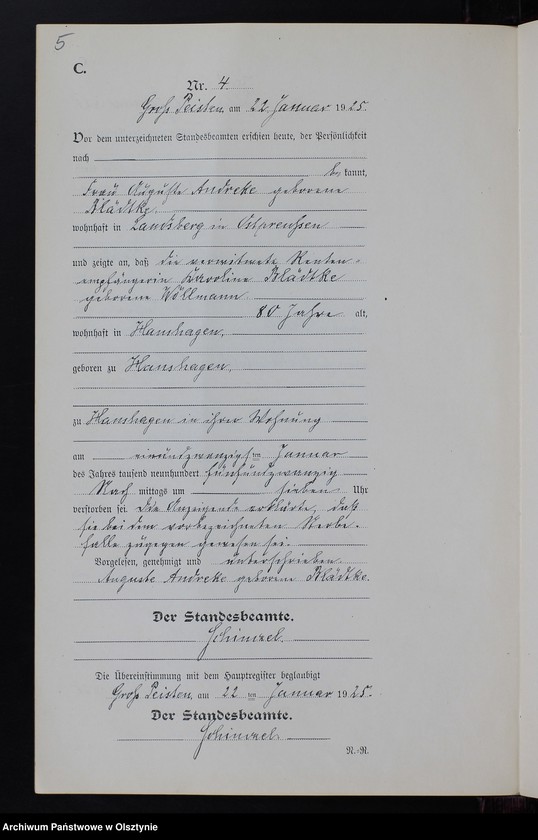 5
C.
Nr. 4
Groß Peisten, am 22. Januar 1925.
Vor dem unterzeichneten Standesbeamten erschien heute, der Persönlichkeit
nach
be kannt,
Frau Auguste Andreke geborene
Klädtke,
wohnhaft in Landsberg in Ostpreußen
und zeigte an, daß die verwitwete Renten-
empfängerin Karoline Klädtke
geborene Wöllmann
80 Jahre alt,
wohnhaft in Hanshagen,
geboren zu Hanshagen,
zu Hanshagen in ihrer Wohnung
am einundzwanzigsten Januar
des Jahres tausend neunhundert fünfundzwanzig
Nach mittags um sieben Uhr
verstorben sei. Die Anzeigende erklärte, daß
sie bei dem vorbezeichneten Sterbe-
falle zugegen gewesen sei.
Vorgelesen, genehmigt und unterschrieben
Auguste Andreke geborene Klädtke.
Der Standesbeamte.
Schinzel.
Die Übereinstimmung mit dem Hauptregister beglaubigt
Groß Peisten, am 22 ten Januar 1925.
Der Standesbeamte.
Schinzel.
N.-R.
Archiwum Państwowe w Olsztynie